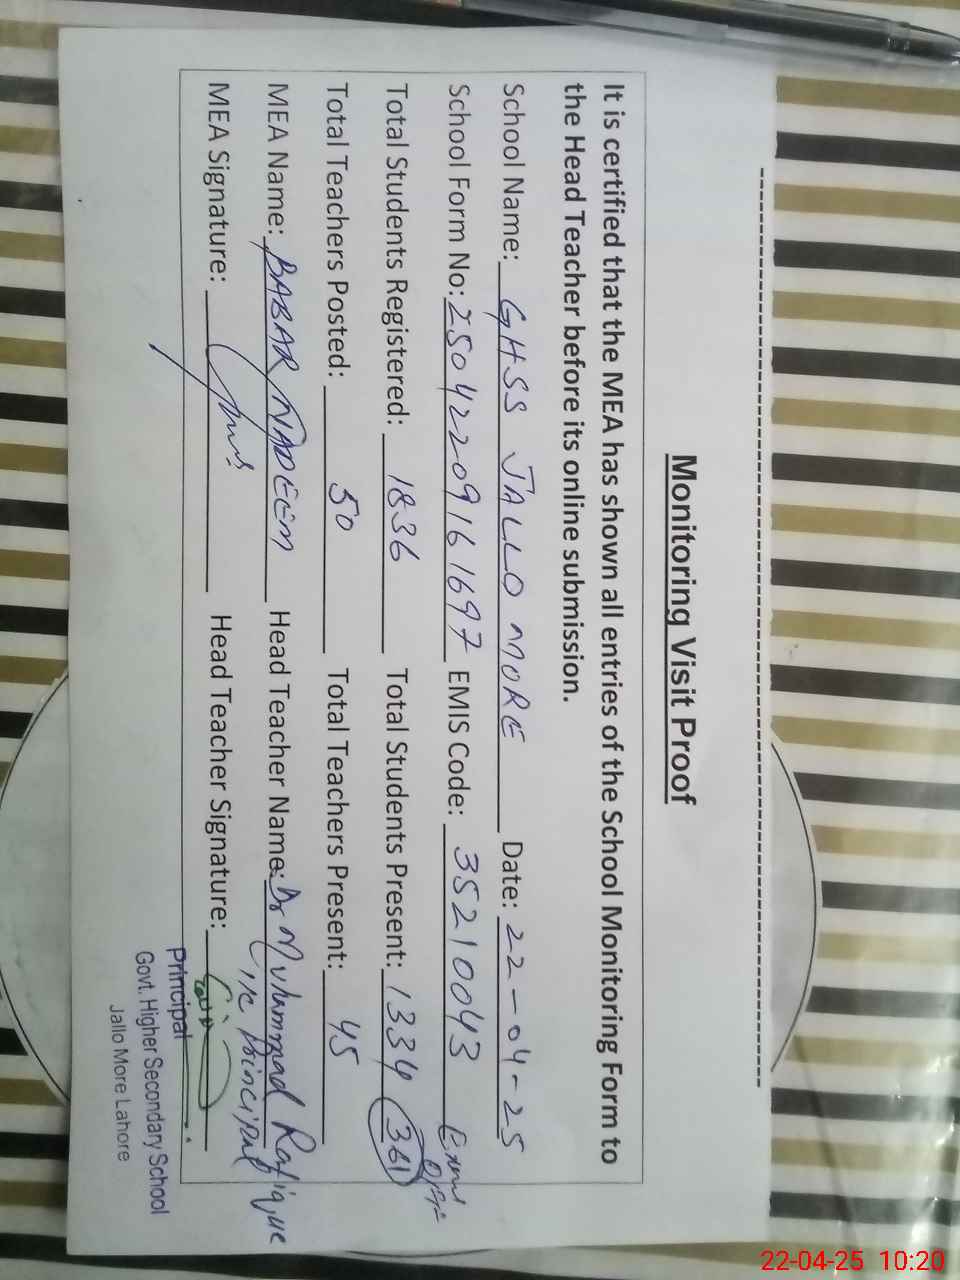 Monitoring Visit Proof
It is certified that the MEA has shown all entries of the School Monitoring Form to
the Head Teacher before its online submission.
School Name: GHSS JALLO MORE Date: 22-04-25
School Form No: 25042209161697 EMIS Code: 35210043
Total Students Registered: 1836 Total Students Present: 1334 (361) Exam
Total Teachers Posted: 50 Total Teachers Present: 45
MEA Name: BABAR NADEEM Head Teacher Name: Dr Muhammad Rafique
I/C Principal
MEA Signature: Head Teacher Signature:
Principal
Govt. Higher Secondary School
Jallo More Lahore
22-04-25 10:20